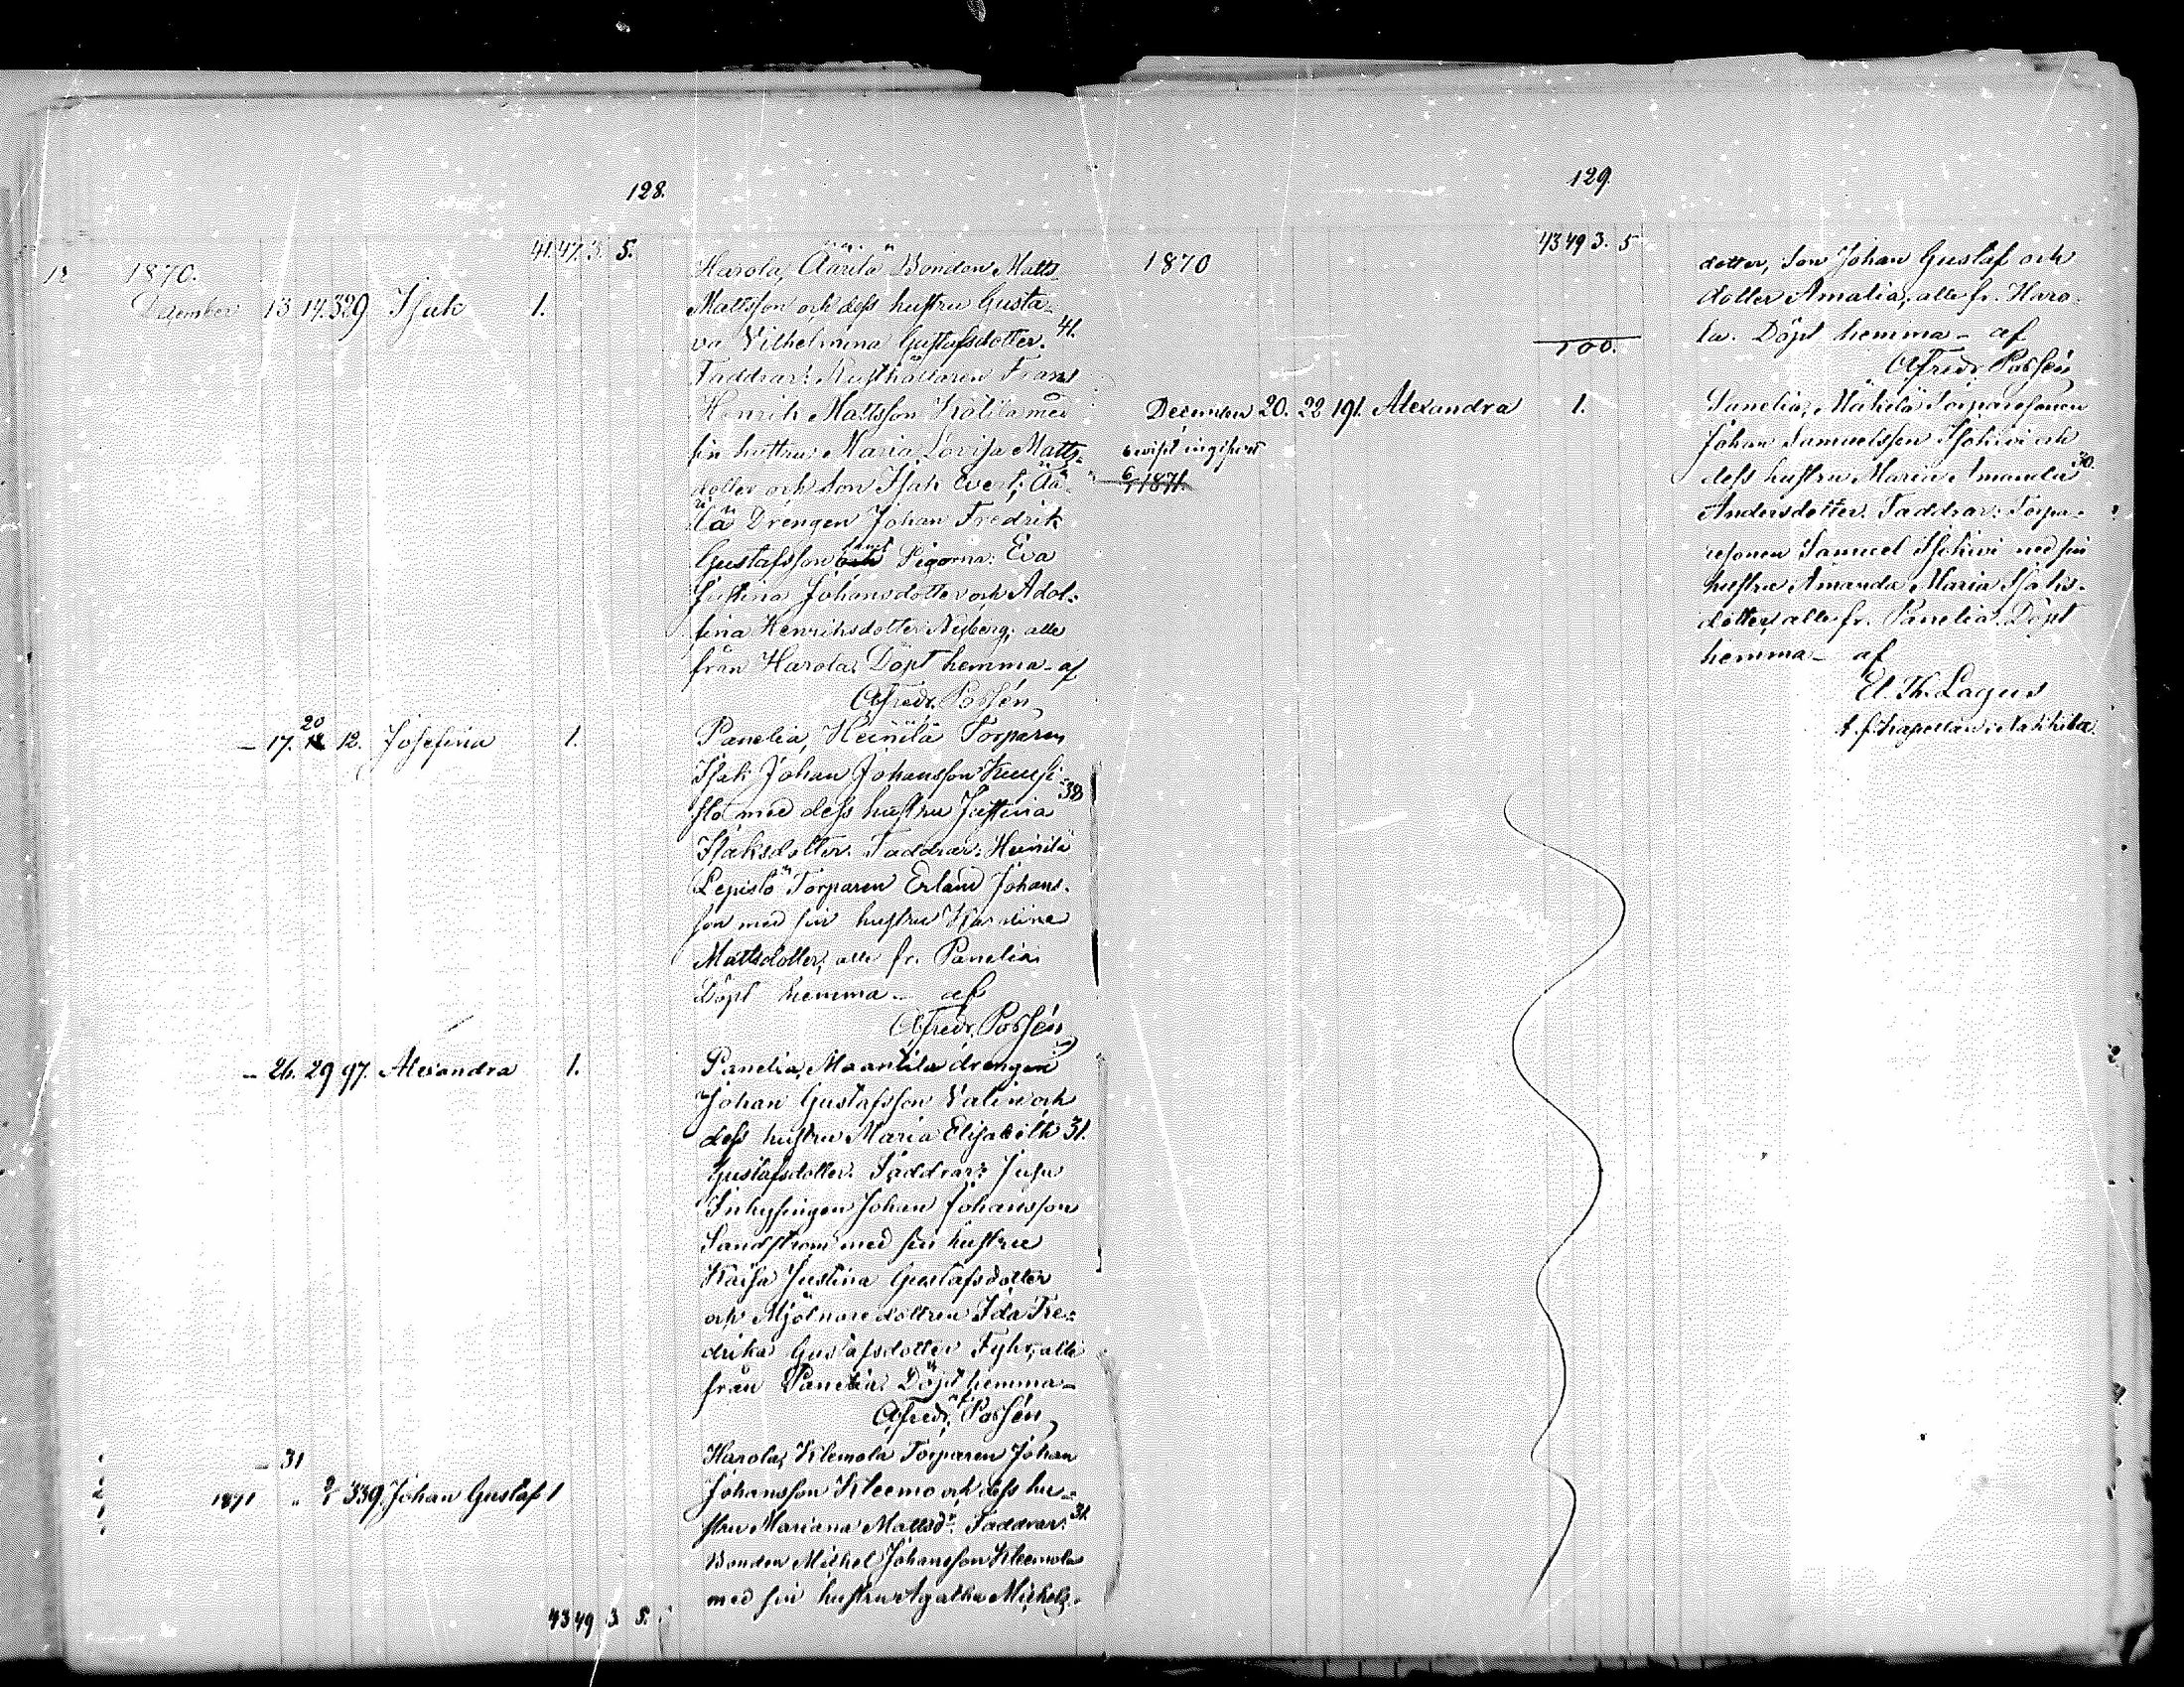 128.
41. 47. 3. 5.
12 1870.
December 13. 14. 329 Isak 1.
Harola, Äärilä Bonden Matts
Mattsson och dess hustru Gusta-
va Vilhelmina Gustafsdotter. 41.
Faddrar: Rusthållaren Frans
Henrik Mattsson med
sin hustru Maria Lovisa Matts-
dotter och son Isak Evert; Ää-
rilä Drengen Johan Fredrik
Gustafsson samt Pigorna: Eva
Justina Johansdotter och Adol-
fina Henriksdotter Nyberg; alle
från Harola. Döpt hemma - af
Alfredr. Possén
- 17. 20 12. Josefina 1.
Panelia, Heinilä Torparen
Isak Johan Johansson Kuusi-
sto med dess hustru Justina 38
Isaksdotter. Faddrar: Heinilä
Lepistö Torparen Erland Johans-
son med sin hustru
Mattsdotter; alle fr. Panelia.
Döpt hemma - af
Alfredr. Possén
- 26. 29 97. Alexandra 1.
Panelia, Maantila drengen
Johan Gustafsson Valin och
dess hustru Maria Elisabeth 31.
Gustafsdotter. Faddrar:
Inhysingen Johan Johansson
Sandström med sin hustru
Kaisa Justina Gustafsdotter
och Mjölnaredottren Ida Fre-
drika Gustafsdotter Fyhr; alle
från Panelia. Döpt hemma -
af
Alfredr. Possén
- 31
1871 " 2/1 339. Johan Gustaf 1
Harola, Klemola Torparen Johan
Johansson Kleemo och dess hu-
stru Mariana Mattsdr. Faddrar: 31.
Bonden Michel Johansson Kleemola
med sin hustru Agatha Michels-
43 49 3 5.
129.
43 49 3. 5
1870
dotter, Son Johan Gustaf och
dotter Amalia, alle fr. Haro-
la. Döpt hemma - af
100.
Alfredr. Possén
December 20. 22 191. Alexandra 1.
6/1 1871.
Panelia, Mäkilä Torparesonen
Johan Samuelsson Isokivi och
dess hustru Maria Amanda 30.
Andersdotter. Faddrar: Torpa-
resonen Samuel Isokivi med sin
hustru Amanda Maria Isaks-
dotter, alle fr. Panelia. Döpt
hemma - af
El. Th. Lagus
t. f. kapellan i Nakkila.